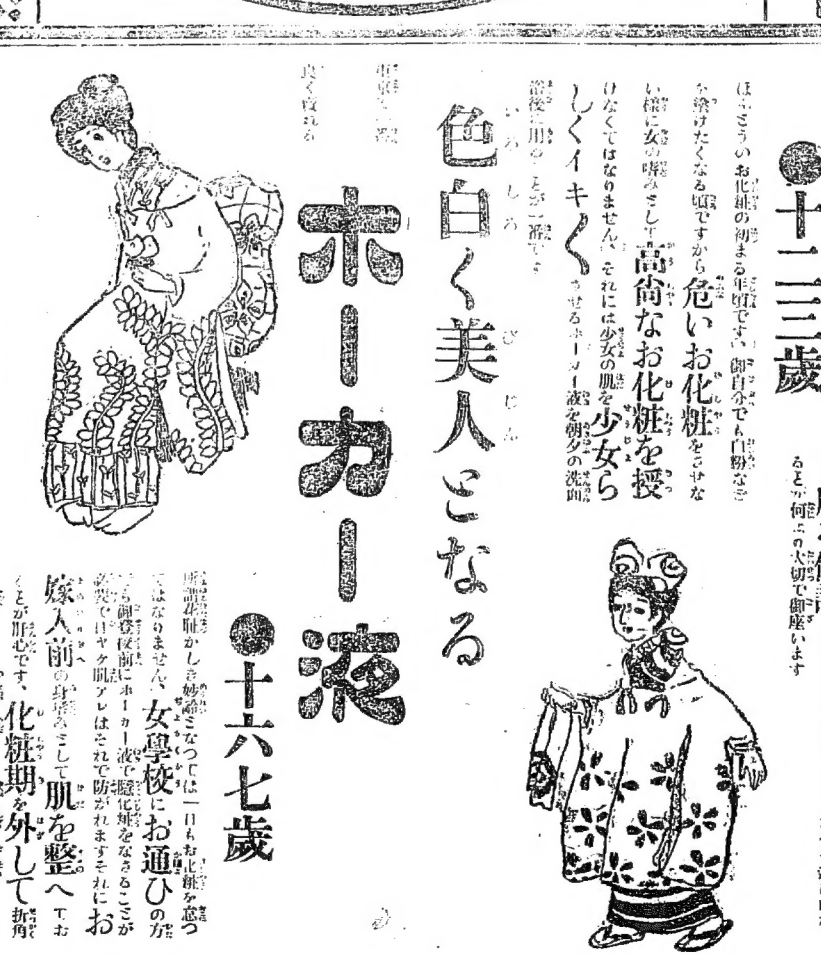 ●十二三歳
ほんとうのお化粧の初まる年頃です。御自分でも白粉など
を塗けたくなる頃ですから危いお化粧をさせな
い様に女の嗜みとして高尚なお化粧を授
けなくてはなりません、それには少女の肌を少女ら
しくイキ〱させるホーカー液を朝夕の洗面
浴後に用ることが一番です
ると 何よの大切で御座います
色白く美人となる
ホーカー液
東京で一番
良く賣れる
●十六七歳
所謂花恥かしき妙齢となつては一日もお化粧を怠つ
てはなりません、女學校にお通ひの方
なら御登校前にホーカー液で隠化粧をなさることが
必要で日ヤケ肌アレはそれで防がれますそれにお
嫁入前の身嗜みとして肌を整へてお
くことが肝心です、化粧期を外して折角